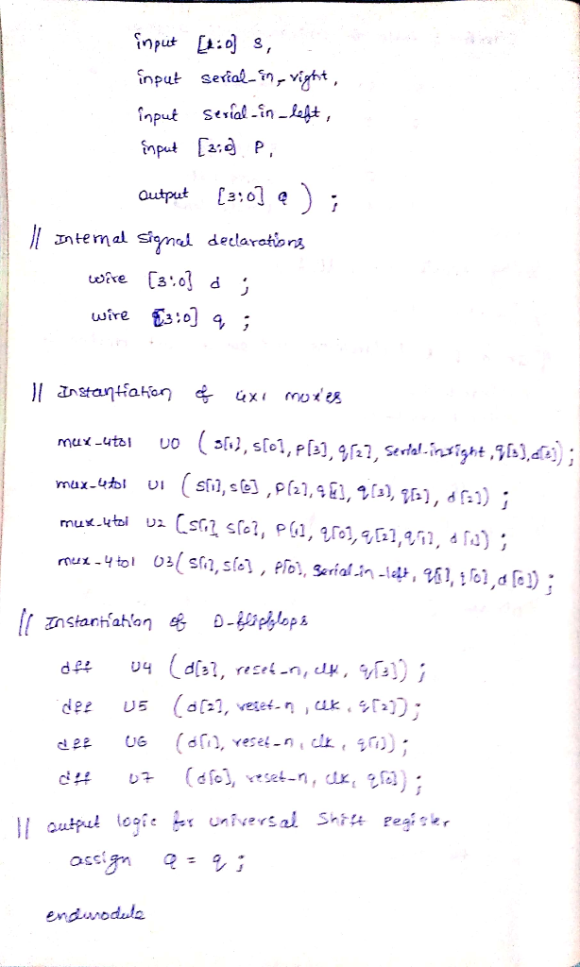 input [1:0] s,
input serial-in-right,
input serial-in-left,
input [3:0] P,
output [3:0] Q ) ;
// Internal signal declarations
wire [3:0] d ;
wire [3:0] q ;
// Instantiation of 4x1 mux'es
mux-4to1 U0 ( s[1], s[0], P[3], q[2], serial-in-right, q[3], d[3]) ;
mux-4to1 U1 ( s[1], s[0], P[2], q[1], q[3], q[2], d[2]) ;
mux-4to1 U2 ( s[1], s[0], P[1], q[0], q[2], q[1], d[1]) ;
mux-4to1 U3( s[1], s[0], P[0], serial-in-left, q[1], q[0], d[0]) ;
// Instantiation of D-flipflops
dff U4 (d[3], reset-n, clk, q[3]) ;
dff U5 (d[2], reset-n, clk, q[2]) ;
dff U6 (d[1], reset-n, clk, q[1]) ;
dff U7 (d[0], reset-n, clk, q[0]) ;
// output logic for universal shift register
assign Q = q ;
endmodule